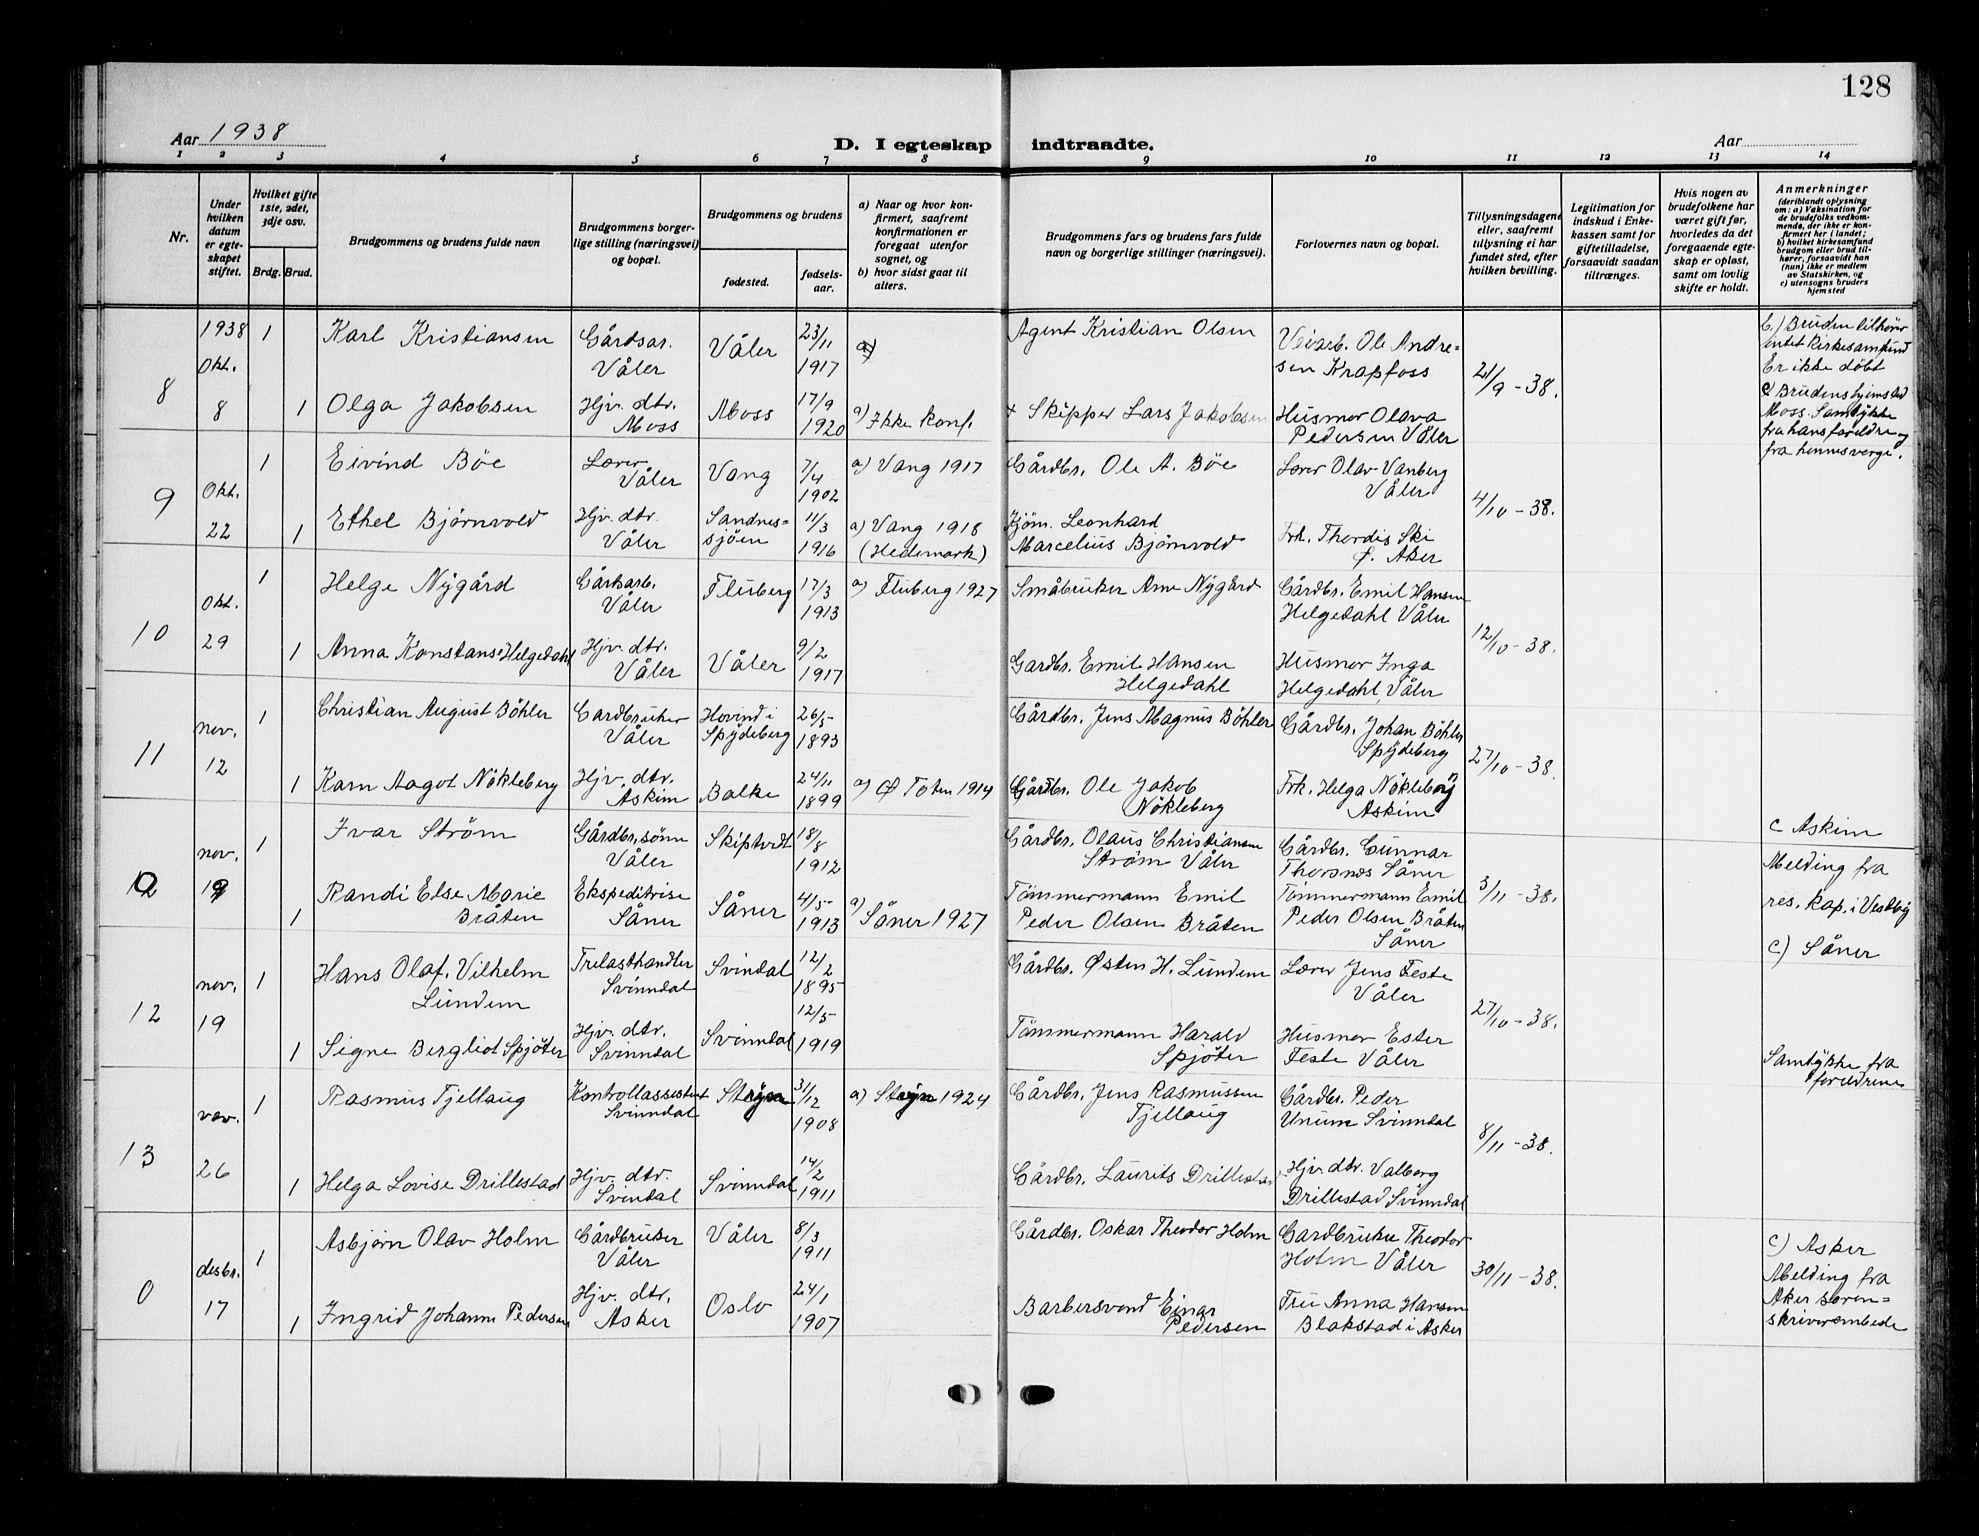 128
Aar 1938
D. I egteskap indtraadte.
Aar
1 2 3 4 5 6 7 8 9 10 11 12 13 14
Nr.
Under hvilken datum er egteskapet stiftet.
Hvilket gifte 1ste, 2det, 3dje osv.
Brdg. Brud.
Brudgommens og brudens fulde navn
Brudgommens borgerlige stilling (næringsvei) og bopæl.
Brudgommens og brudens
fødested.
fødselsaar.
a) Naar og hvor konfirmert, saafremt konfirmationen er foregaat utenfor sognet, og
b) hvor sidst gaat til alters.
Brudgommens fars og brudens fars fulde navn og borgerlige stillinger (næringsvei).
Forlovernes navn og bopæl.
Tillysningsdagene eller, saafremt tillysning ei har fundet sted, efter hvilken bevilling.
Legitimation for indskud i Enkekassen samt for giftetilladelse, forsaavidt saadan tiltrænges.
Hvis nogen av brudefolkene har været gift før, hvorledes da det foregaaende egteskap er opløst, samt om lovlig skifte er holdt.
Anmerkninger (deriblandt oplysning om: a) Vaksination for de brudefolks vedkommende, der ikke er konfirmert her i landet; b) hvilket kirkesamfund brudgom eller brud tilhører, forsaavidt han (hun) ikke er medlem av Statskirken, og c) utensogns bruders hjemsted
8
1938 Okt. 8
1 Karl Kristiansen
Gårdsar. Våler
Våler
23/11 1917
a)
Agent Kristian Olsen
Veiarb. Ole Andresen Krapfoss
21/9 - 38.
b.) Bruden tilhører intet kirkesamfund Er ikke døbt
1 Olga Jakobsen
Hjv. dtr. Moss
Moss
17/9 1920
a) Ikke konf.
+ Skipper Lars Jakobsen
Husmor Olava Pedersen Våler
c) Brudens hjemsted Moss. Samtykke fra hans foreldre og fra hennes verge.
9
Okt. 22
1 Eivind Böe
Lærer Våler
Vang
7/4 1902
a) Vang 1917
Gårdbr. Ole A. Böe
Lærer Olav Vanberg Våler
4/10 - 38.
1 Ethel Bjørnvold
Hjv. dtr. Våler
Sandnessjöen
11/3 1916
a) Vang 1918 (Hedemark)
Kjøm. Leonhard Marcelius Bjørnvold
Frk. Thordis Ski Ø. Aker
10
Okt. 29
1 Helge Nygård
Gårdsarb. Våler
Fluberg
17/3 1913
a) Fluberg 1927
Småbruker Arne Nygård
Gårdbr. Emil Hansen Helgedahl Våler
12/10 - 38.
1 Anna Konstanse Helgedahl
Hjv. dtr. Våler
Våler
9/2 1917
Gardbr. Emil Hansen Helgedahl
Husmor Inga Helgedahl, Våler
11
nov. 12
1 Christian August Böhler
Gardbruker Våler
Hovind i Spydeberg
26/5 1893
Gårdbr. Jens Magnus Böhler
Gårdbr. Johan Böhler Spydeberg
27/10 - 38.
1 Karn Aagot Nökleberg
Hjv. dtr. Askim
Balke
24/11 1899
a) Ø Toten 1914
Gårdbr. Ole Jakob Nökleberg
Frk. Helga Nökleberg Askim
c Askim
nov. 19
1 Ivar Ström
Gårdbr. sönn Våler
Skiptvedt
18/8 1912
Gårdbr. Olaus Christiansen Ström Våler
Gårdbr. Gunnar Thorsnes Såner
3/11 - 38.
Melding fra res. kap. i Vestby
1 Randi Else Marie Bråten
Ekspeditrise Såner
Såner
4/5 1913
a) Såner 1927
Tömmermann Emil Peder Olsen Bråten
Tömmermann Emil Peder Olsen Bråten Såner
c) Såner
12
nov. 19
1 Hans Olaf Vilhelm Lundem
Trelasthandler Svinndal
Svindal
12/2 1895
Gårdbr. Østen H. Lundem
Lærer Jens Feste Våler
27/10 - 38.
1 Signe Bergliot Spjøter
Hjv. dtr. Svinndal
Svinndal
12/5 1919
Tömmermann Harald Spjöter
Husmor Ester Feste Våler
Samtykke fra foreldrene
13
nov. 26
1 Rasmus Tjellaug
Kontrollassistent Svinndal
Stryn
31/12 1908
a) Stryn 1924
Gårdbr. Jens Rasmussen Tjellaug
Gårdbr. Peder Unum Svinndal
8/11 - 38.
1 Helga Lovise Drillestad
Hjv. dtr. Svindal
Svinndal
14/2 1911
Gårdbr. Laurits Drillestad
Hjv. dtr. Valborg Drillestad Svinndal
0
desbr. 17
1 Asbjørn Olav Holm
Gårdbruker Våler
Våler
8/3 1911
Gårdbr. Oskar Theodor Holm
Gardbruker Theodor Holm Våler
30/11 - 38.
c) Asker
Melding fra Aker sorenskriverembede
1 Ingrid Johanne Pedersen
Hjv. dtr. Asker
Oslo
24/1 1907
Barbersvend Einar Pedersen
Fru Anna Hansen Blakstad i Asker